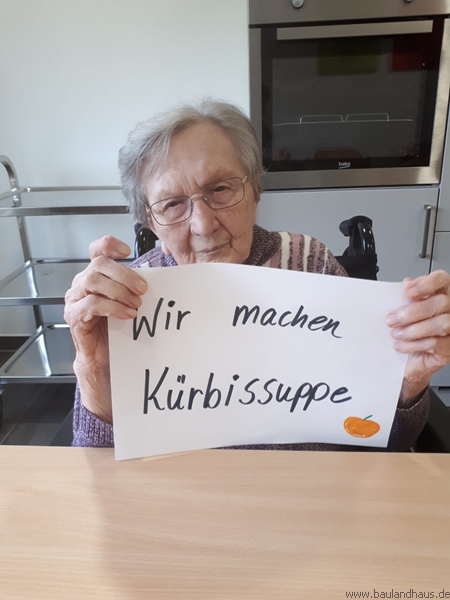 beko
Wir machen
Kürbissuppe
www.baulandhaus.de